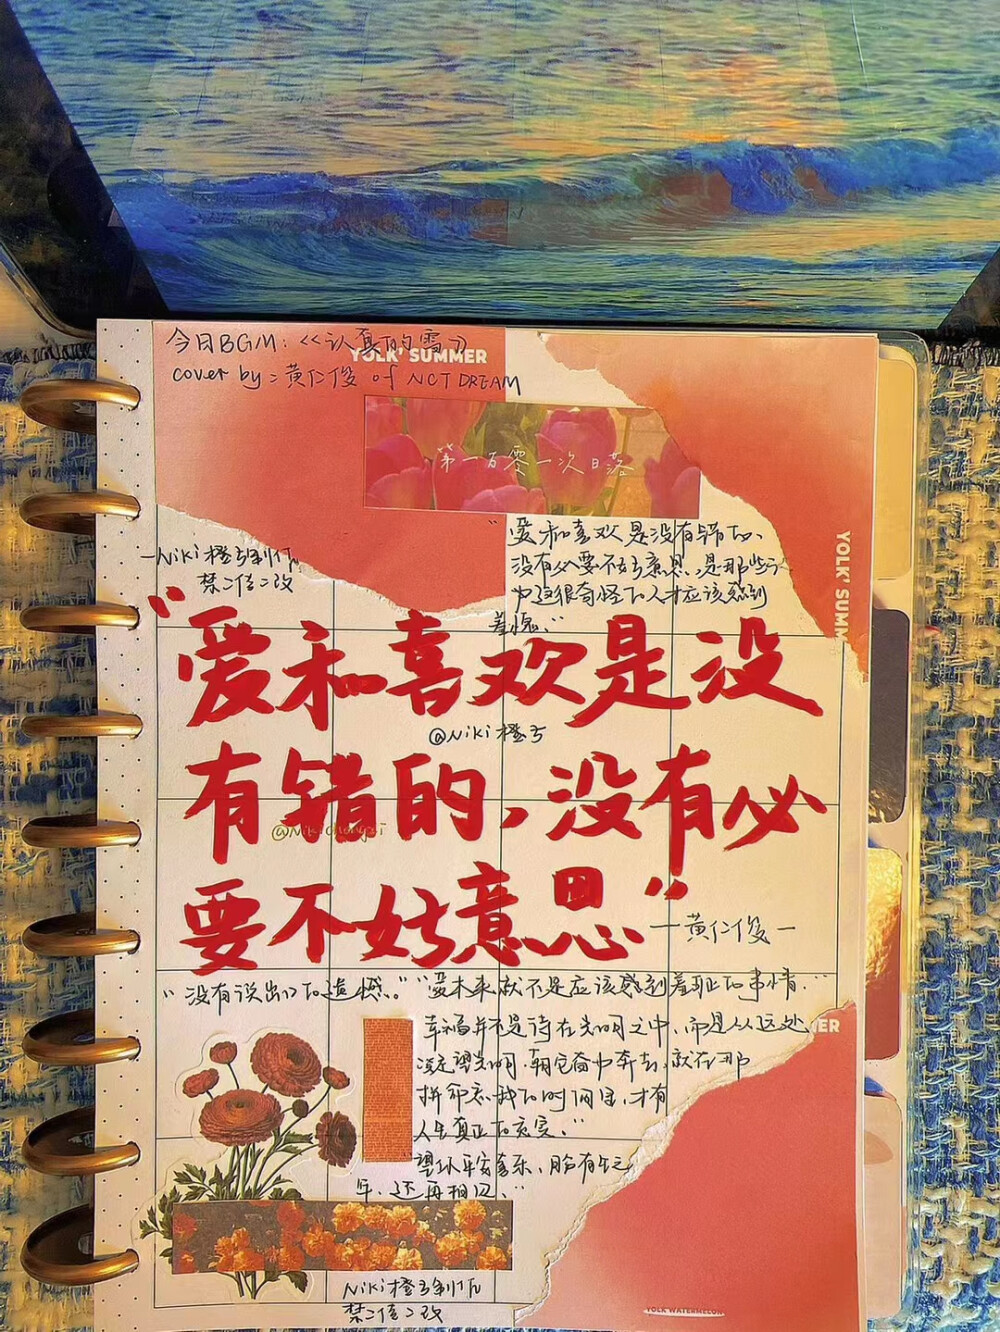 今日BGM:《认真的雪》
YOLK' SUMMER
cover by:黄仁俊 of NCT DREAM
第一百零一次日落
"爱和喜欢是没有错的、
没有必要不好意思,是那些
觉这很奇怪的人才应该感到
羞愧."
YOLK' SUMM
—Niki橙子制作
禁二传二改
"爱和喜欢是没
@Niki橙子
有错的,没有必
@Nikichengzi
要不好意思"
—黄仁俊—
"没有说出口的遗憾。""爱本来就不是应该感到羞耻的事情."
幸福并不是待在光明之中,而是从远处
ER
凝望光明,朝它奋力奔去,就在那
拼命忘我的时间里,才有
人生真正的充实."
望环平安喜乐,盼有生之
年,还再相见."
Niki橙子制作
禁二传二改
YOLK WATERMELON